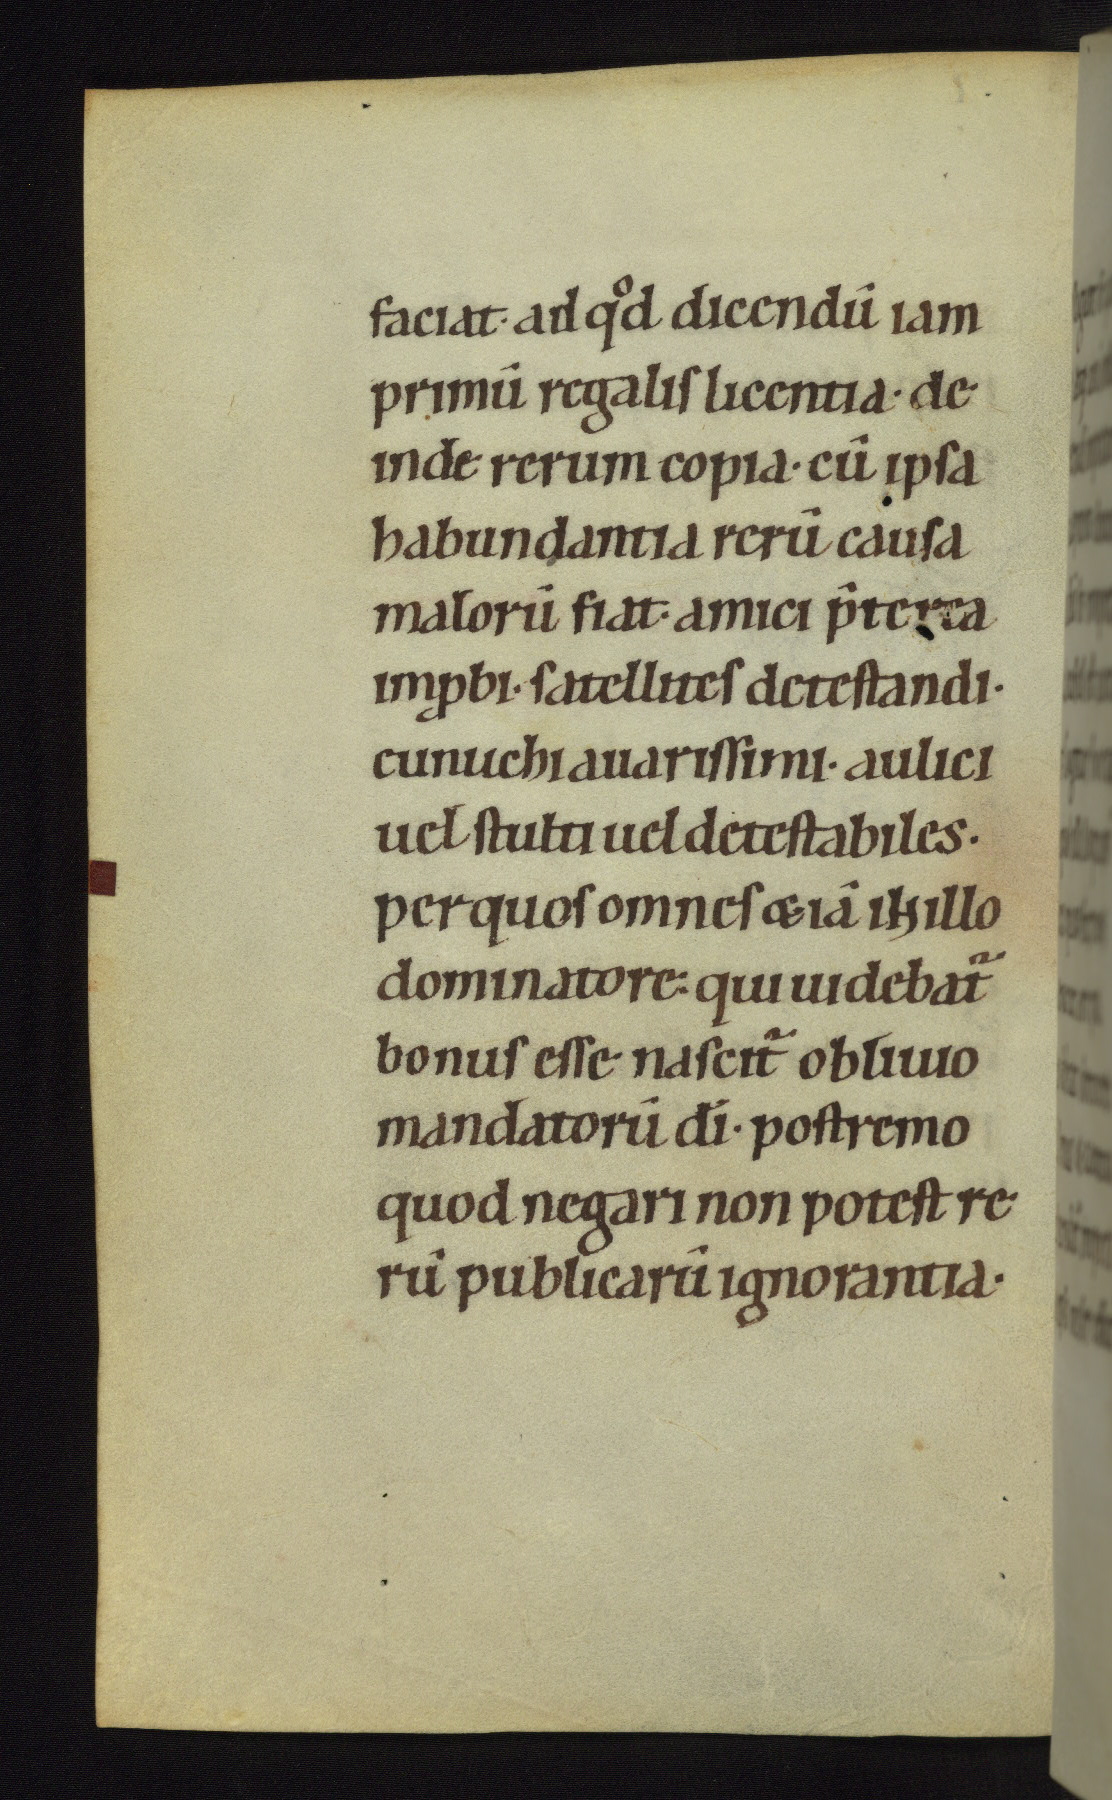 faciat· ad qͦd dicendū iam
primū regaliſ licentia· de
inde rerum copia· cū ipſa
habundantia rerū cauſa
malorū fiat· amici p̄terea
imꝓbi· ſatelliteſ deteſtandi·
eunuchi auariſſimi· aulici
uel ſtulti uel deteſtabiles·
per quoſ omneſ &iā
dominatore: qui uidebat᷑
bonuſ eſſe naſcit᷑ obliuio
mandatorū dī· poſtremo
quod negari non poteſt re
rū publicarū ignorantia·